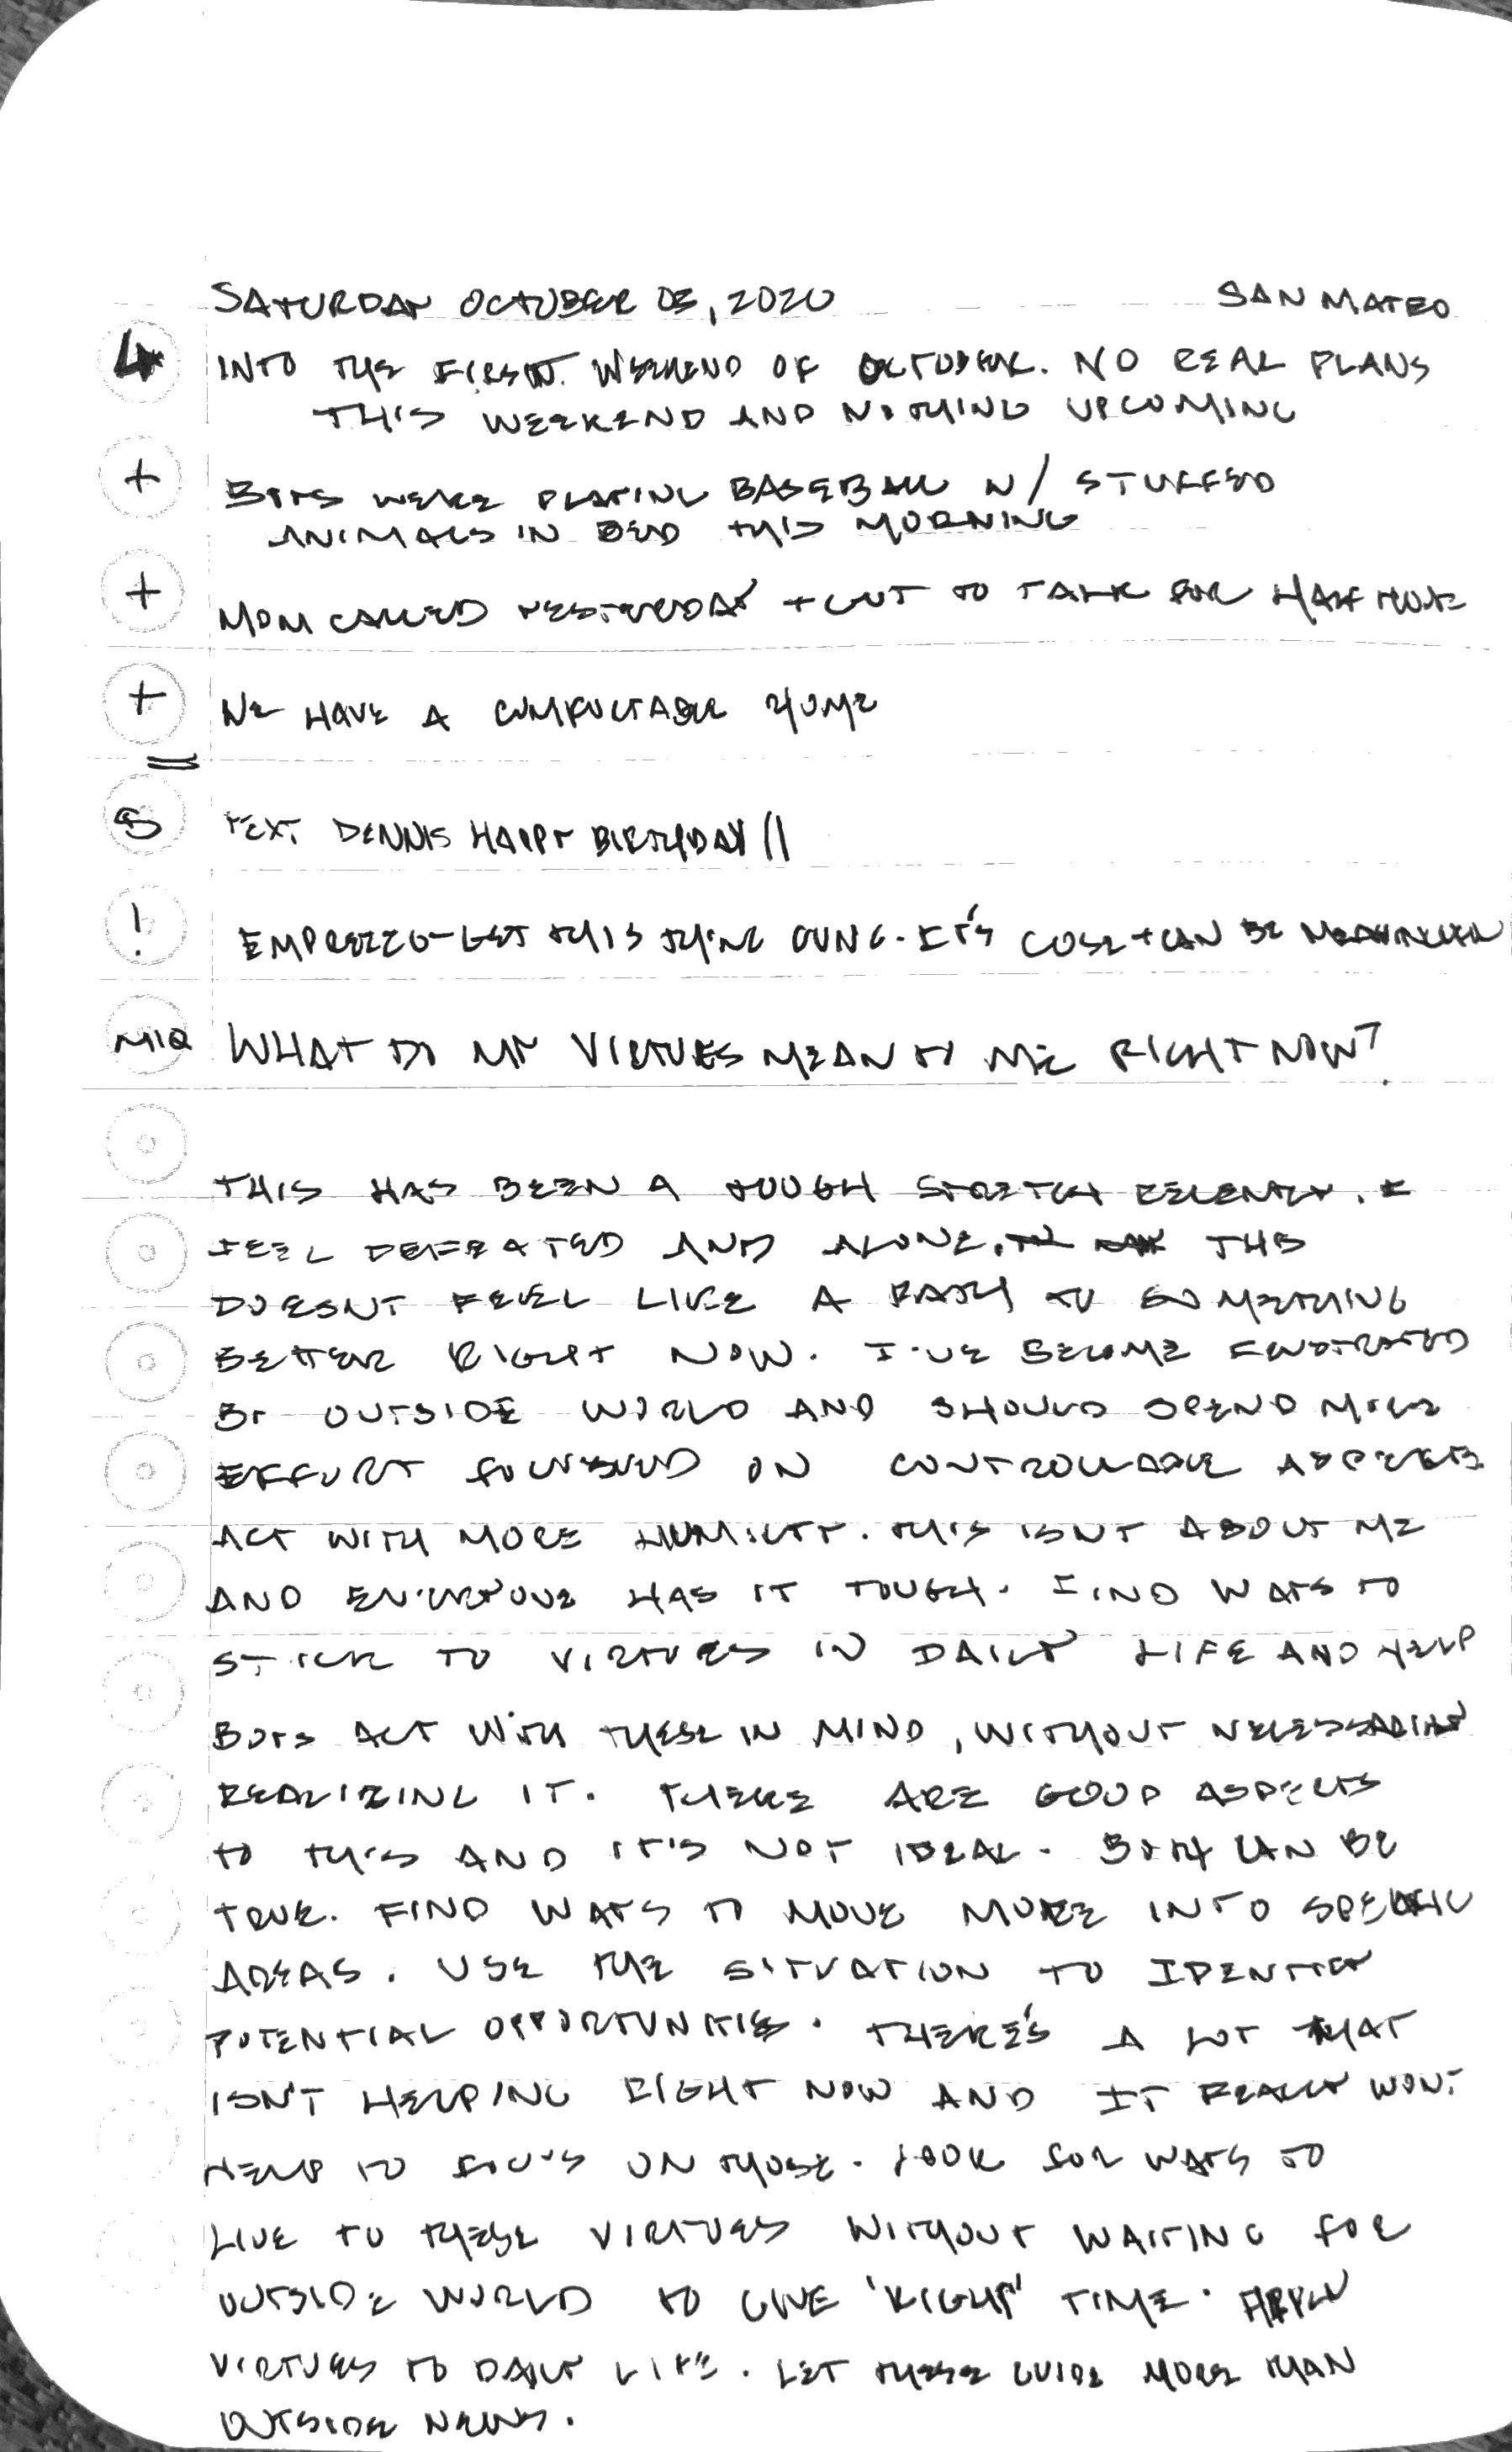 SATURDAY OCTOBER 03, 2020 SAN MATEO
4 INTO THE FIRST WEEKEND OF OCTOBER. NO REAL PLANS
THIS WEEKEND AND NOTHING UPCOMING
+ BOYS WERE PLAYING BASEBALL W/ STUFFED
ANIMALS IN BED THIS MORNING
+ MOM CALLED YESTERDAY + GOT TO TALK FOR HALF HOUR
+ WE HAVE A COMFORTABLE HOME
S TEXT DENNIS HAPPY BIRTHDAY
! GET THIS THING GOING. IT'S CLOSE + CAN BE MEANINGFUL
MIQ WHAT DO MY VIRTUES MEAN TO ME RIGHT NOW?
THIS HAS BEEN A TOUGH STRETCH RECENTLY. I
FEEL DEFEATED AND ALONE. THIS
DOESNT FEEL LIKE A PATH TO SOMETHING
BETTER RIGHT NOW. I'VE BECOME FRUSTRATED
BY OUTSIDE WORLD AND SHOULD SPEND MORE
EFFORT FOCUSED ON CONTROLLABLE ASPECTS.
ACT WITH MORE HUMILITY. THIS ISNT ABOUT ME
AND EVERYONE HAS IT TOUGH. FIND WAYS TO
STICK TO VIRTUES IN DAILY LIFE AND HELP
BOYS ACT WITH THESE IN MIND, WITHOUT NECESSARILY
REALIZING IT. THERE ARE GOOD ASPECTS
TO THIS AND IT'S NOT IDEAL. BOTH CAN BE
TRUE. FIND WAYS TO MOVE MORE INTO SPECIFIC
AREAS. USE THE SITUATION TO IDENTIFY
POTENTIAL OPPORTUNITIES. THERE'S A LOT THAT
ISN'T HELPING RIGHT NOW AND IT REALLY WON'T
HELP TO FOCUS ON THOSE. LOOK FOR WAYS TO
LIVE TO THESE VIRTUES WITHOUT WAITING FOR
OUTSIDE WORLD TO GIVE 'RIGHT' TIME. APPLY
VIRTUES TO DAILY LIFE. LET THESE GUIDE MORE THAN
OUTSIDE NEWS.